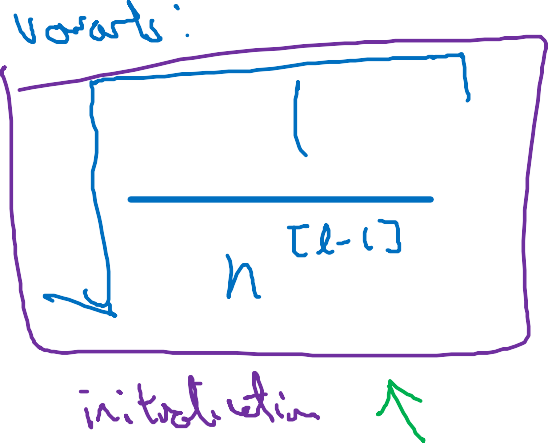 Variants:
√(1 / n^[l-1])
initialization